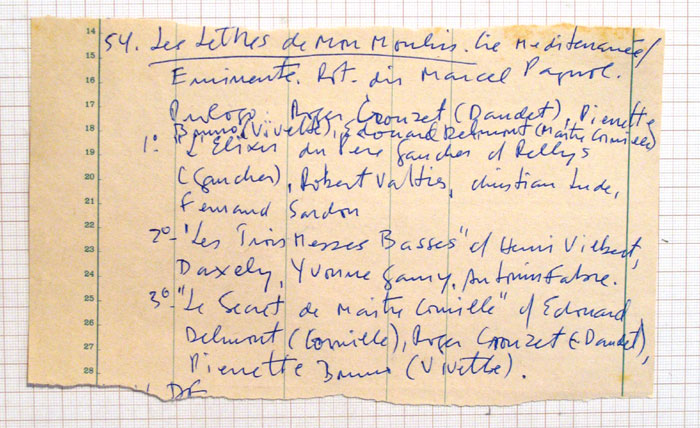 14
54. Les Lettres de Mon Moulin. Cie Mediterranée/
15
Eminente. Rot. dir Marcel Pagnol.
16
17
Prologo: Roger Crouzet (Daudet), Pierrette
18
Bruno (Vivette), Edouard Delmont (Maitre Cornille)
1º L'Elixir du Pere Gaucher c/ Rellys
19
20
(Gaucher), Robert Vattier, Christian Lude,
21
Fernand Sardou
22
2º- "Les Trois Messes Basses" c/ Henri Vilbert,
23
24
Daxely, Yvonne Gamy, Antonin Fabre.
25
3º- "Le Secret de Maitre Cornille" c/ Edouard
26
Delmont (Cornille), Roger Crouzet (Daudet),
27
28
Pierrette Bruno (Vivette).